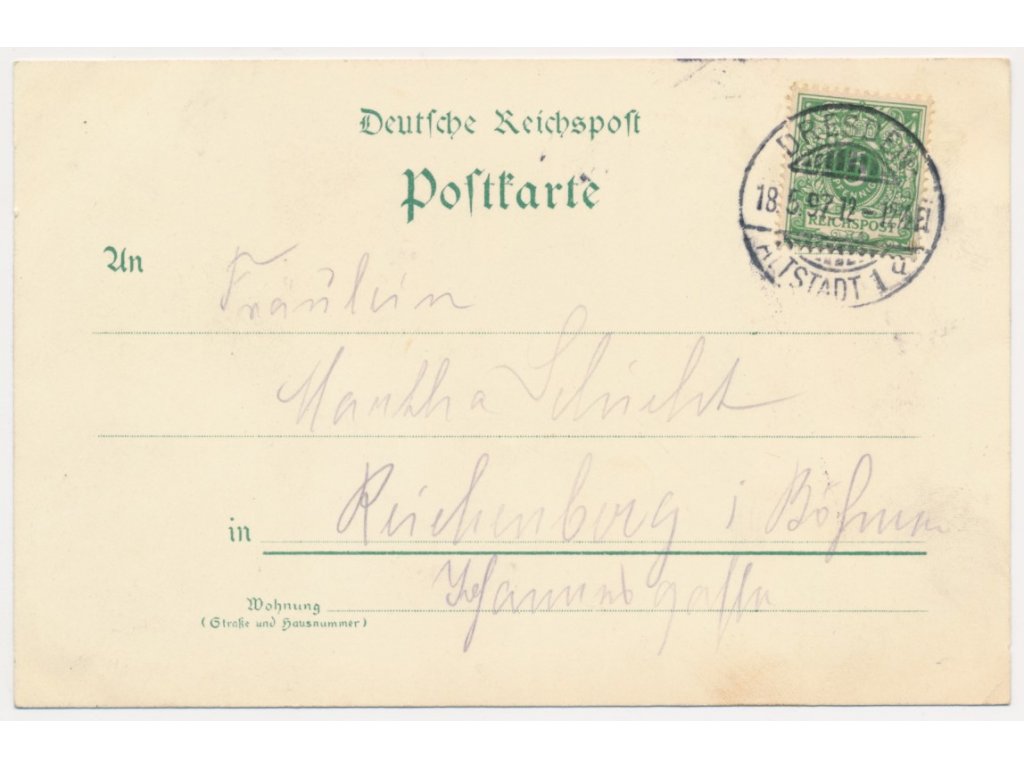 Deutsche Reichspost
Postkarte
DRESDEN
PFENNIG
18. 97 12-
REICHSPOST
ALTSTADT 1
An Fräulein
Martha Schicht
in Reichenberg i Böhmen
Wohnung Johannesgasse
(Straße und Hausnummer)